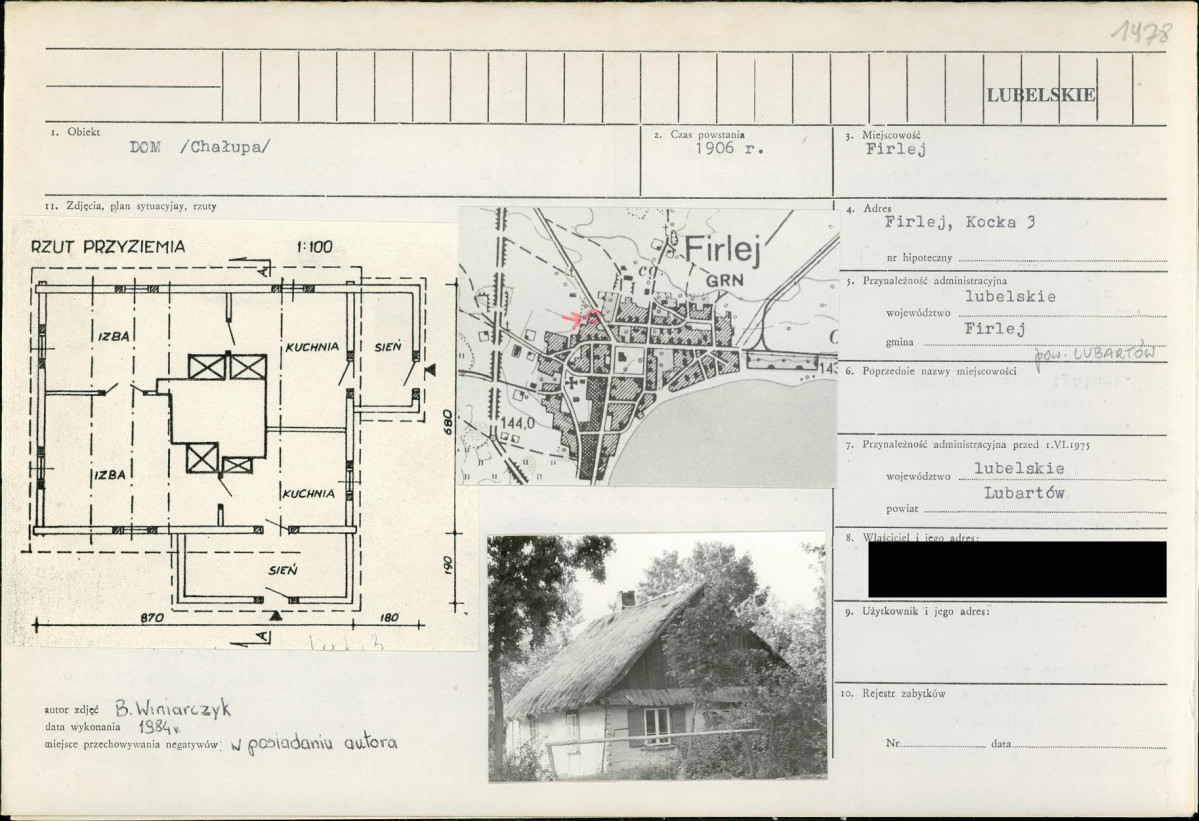 1478
LUBELSKIE
1. Obiekt
DOM /Chałupa/
2. Czas powstania
1906 r.
3. Miejscowość
Firlej
11. Zdjęcia, plan sytuacyjny, rzuty
4. Adres
Firlej, Kocka 3
nr hipoteczny
5. Przynależność administracyjna
lubelskie
województwo
Firlej
gmina
pow. LUBARTÓW
6. Poprzednie nazwy miejscowości
7. Przynależność administracyjna przed 1.VI.1975
lubelskie
województwo
Lubartów
powiat
8. Właściciel i jego adres:
9. Użytkownik i jego adres:
10. Rejestr zabytków
Nr. data
RZUT PRZYZIEMIA 1:100
A
IZBA
KUCHNIA
SIEŃ
680
IZBA
KUCHNIA
SIEŃ
190
870
180
A
Firlej
GRN
cg
144,0
143
autor zdjęć B. Winiarczyk
data wykonania 1984 r.
miejsce przechowywania negatywów: w posiadaniu autora